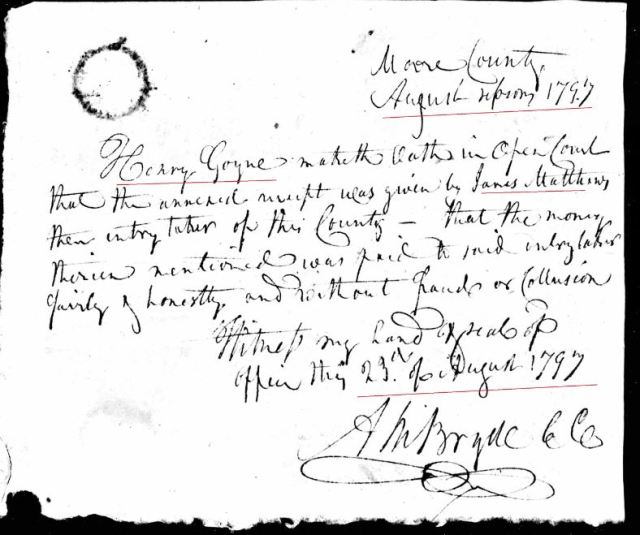 Moore County,
August Sessions 1797
Henry Goyne maketh Oath in Open Court
that the annexed receipt was given by James Matthews
then entry taker of this County — that the money
therein mentioned was paid to said entry taker
fairly & honestly, and without fraud or Collusion
Witness my hand & seal of
office this 23rd of August 1797
A McBryde C C